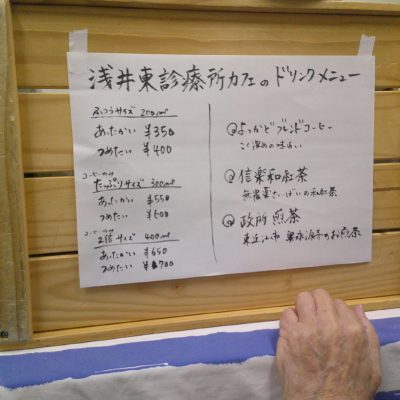 浅井東診療所カフェのドリンクメニュー
ふつうサイズ 200ml
あったかい ¥350
つめたい ¥400
コーヒーのみ
たっぷりサイズ 300ml
あったかい ¥550
つめたい ¥600
コーヒーのみ
2倍サイズ 400ml
あったかい ¥650
つめたい ¥700
よっかどブレンドコーヒー
こく深めの味わい
信楽和紅茶
無農薬さいばいの和紅茶
政所煎茶
東近江市 奥永源寺のお煎茶